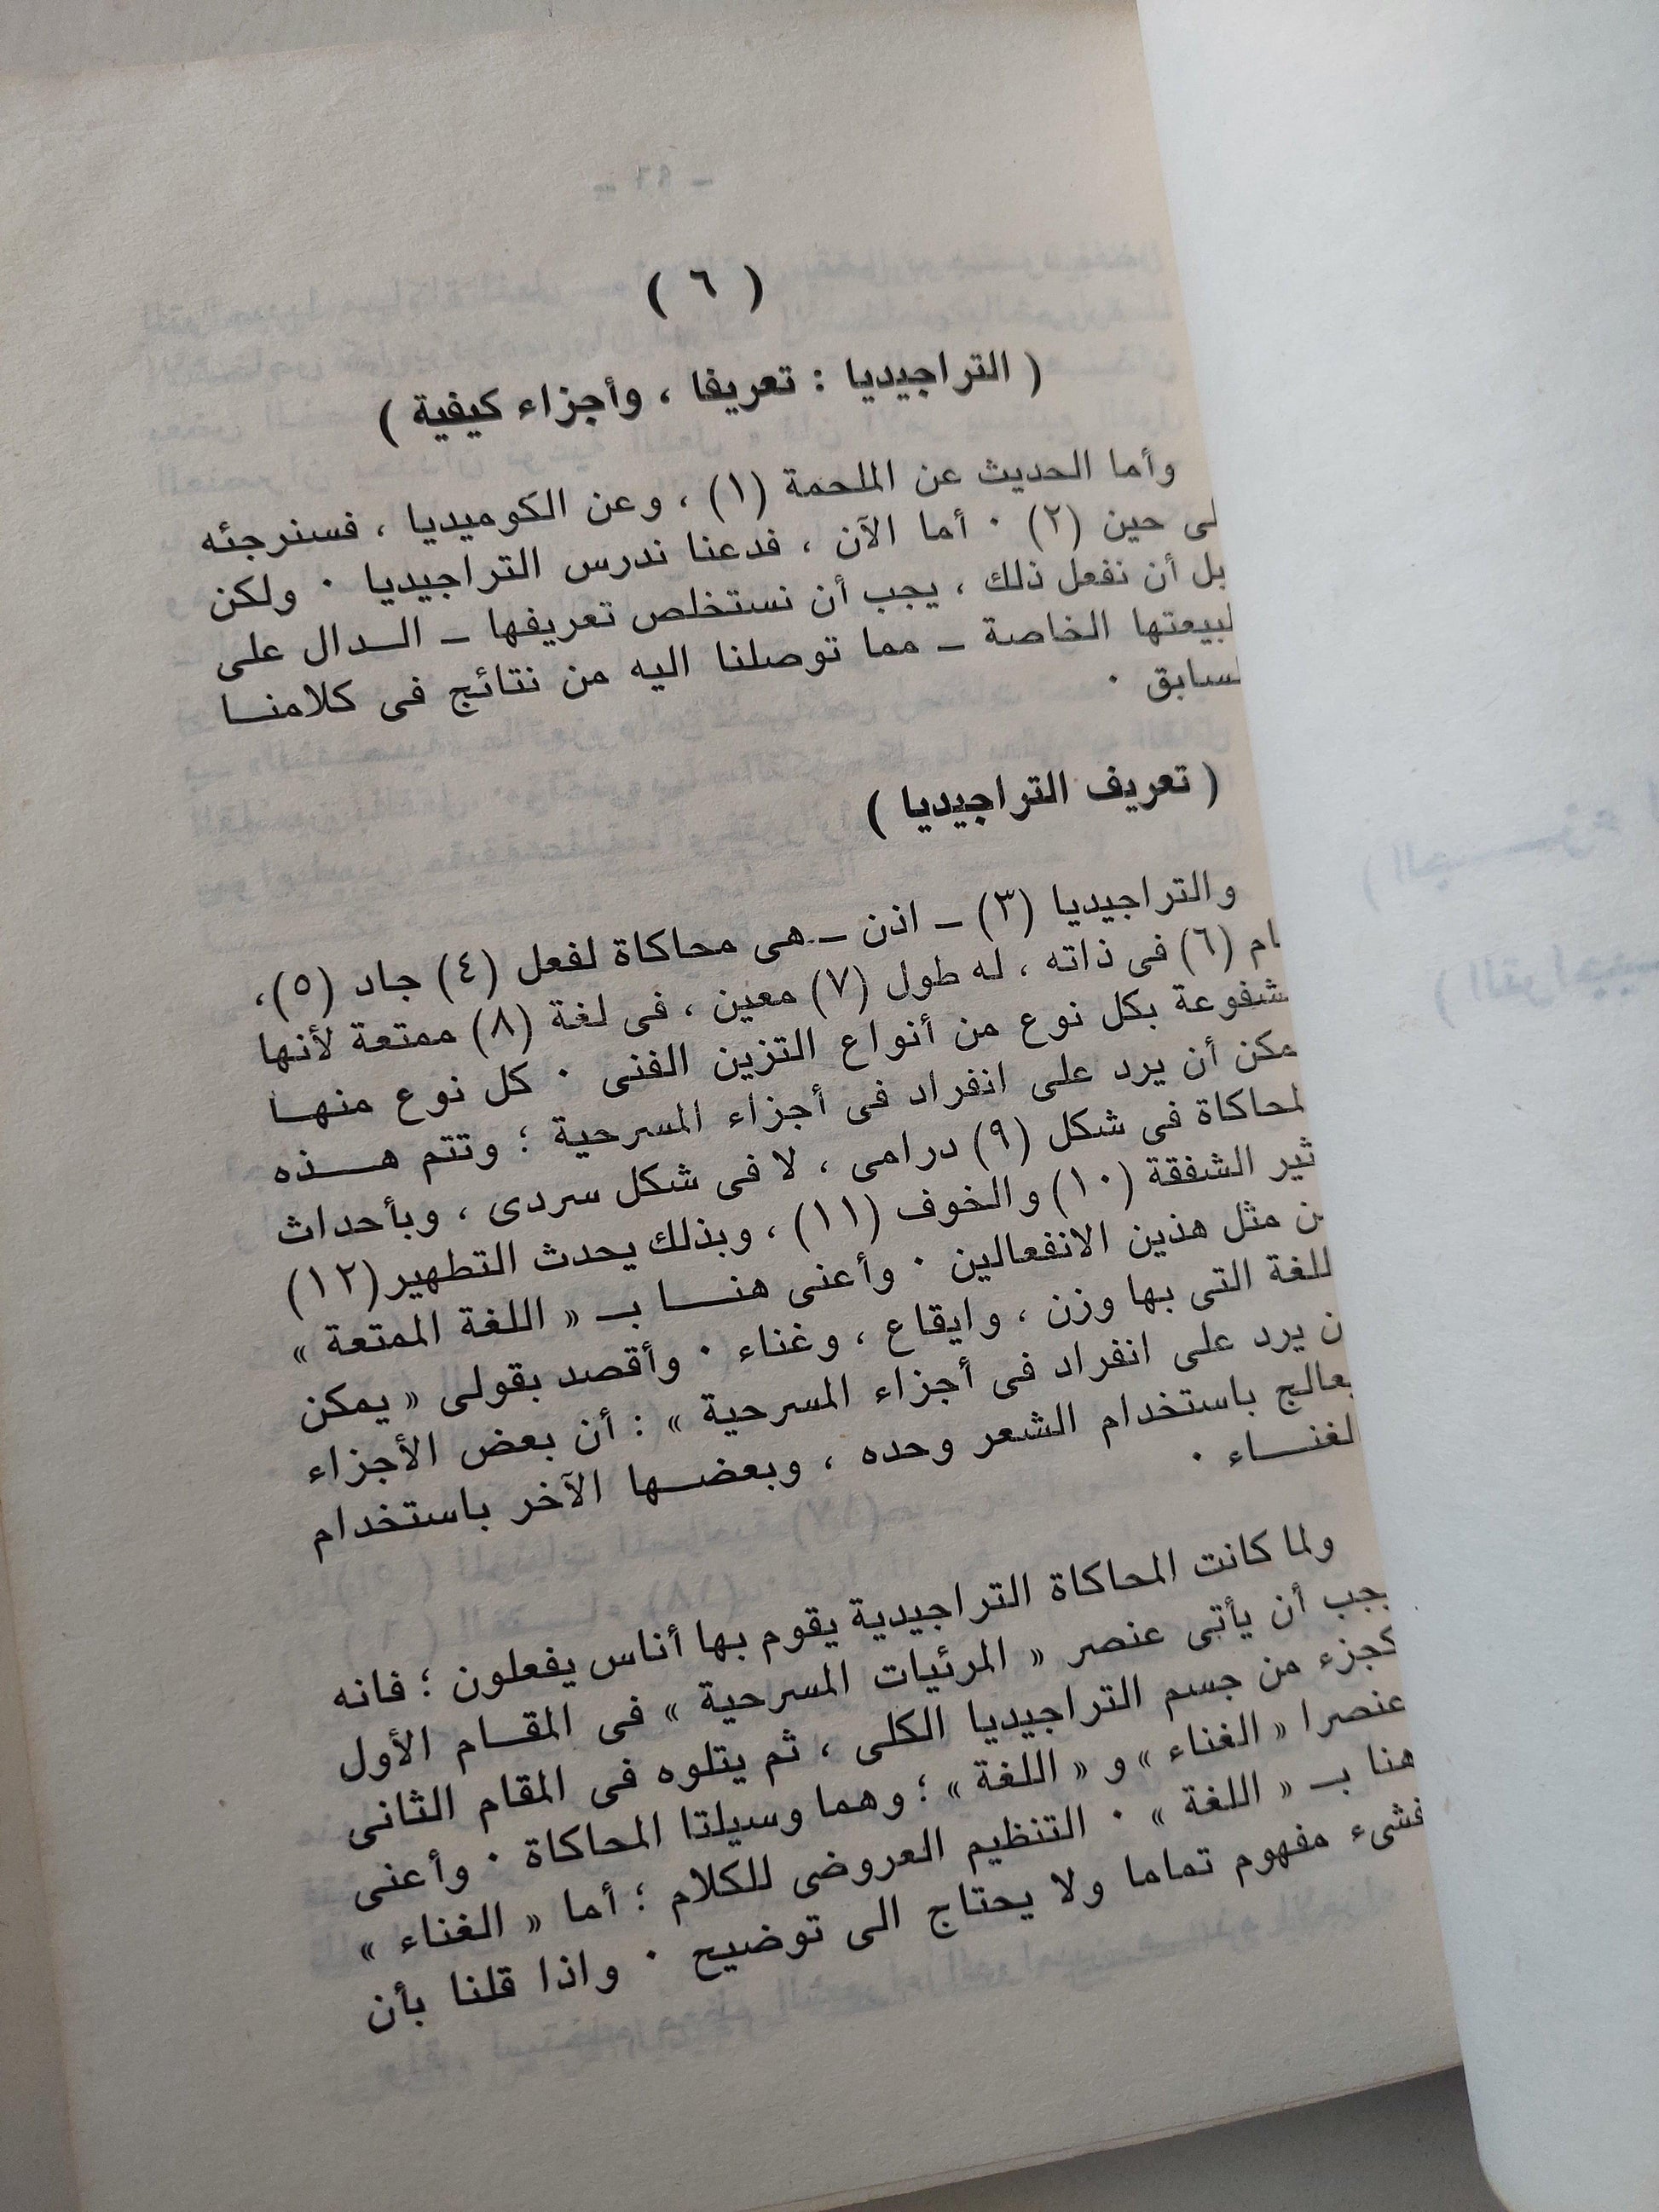 ( ٦ )
( التراجيديا : تعريفا ، وأجزاء كيفية )
وأما الحديث عن الملحمة (١) ، وعن الكوميديا ، فسنرجئه
لى حين (٢) ٠ أما الآن ، فدعنا ندرس التراجيديا ٠ ولكن
بل أن نفعل ذلك ، يجب أن نستخلص تعريفها ــ الــدال على
لبيعتها الخاصة ــ مما توصلنا اليه من نتائج فى كلامنــا
لسابق ٠
( تعريف التراجيديا )
والتراجيديا (٣) ــ اذن ــ هى محاكاة لفعل (٤) جاد (٥) ،
ام (٦) فى ذاته ، له طول (٧) معين ، فى لغة (٨) ممتعة لأنها
شفوعة بكل نوع من أنواع التزين الفنى ٠ كل نوع منهــا
مكن أن يرد على انفراد فى أجزاء المسرحية ؛ وتتم هــذه
لمحاكاة فى شكل (٩) درامى ، لا فى شكل سردى ، وبأحداث
ثير الشفقة (١٠) والخوف (١١) ، وبذلك يحدث التطهير (١٢)
ن مثل هذين الانفعالين ٠ وأعنى هنــا بــ « اللغة الممتعة »
للغة التى بها وزن ، وايقاع ، وغناء ٠ وأقصد بقولى « يمكن
ن يرد على انفراد فى أجزاء المسرحية » : أن بعض الأجزاء
يعالج باستخدام الشعر وحده ، وبعضــها الآخر باستخدام
لغنــاء ٠
ولما كانت المحاكاة التراجيدية يقوم بها أناس يفعلون ؛ فانه
يجب أن يأتى عنصر « المرئيات المسرحية » فى المقــام الأول
كجزء من جسم التراجيديا الكلى ، ثم يتلوه فى المقام الثانى
عنصرا « الغناء » و « اللغة » ؛ وهما وسيلتا المحاكاة ٠ وأعنى
هنا بــ « اللغة » ٠ التنظيم العروضى للكلام ؛ أما « الغناء »
فشىء مفهوم تماما ولا يحتاج الى توضيح ٠ واذا قلنا بأن